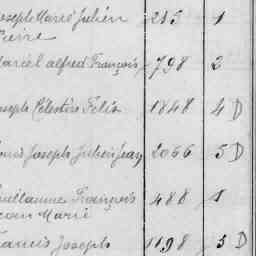 Joseph Marie Julien 285 1
Pierre
Marcel alfred François 798 2
Joseph Célestin Félix 1848 4 D
Louis Joseph Julien Jean 2066 5 D
Guillaume François 488 1
Jean Marie
Francis Joseph 1198 5 D